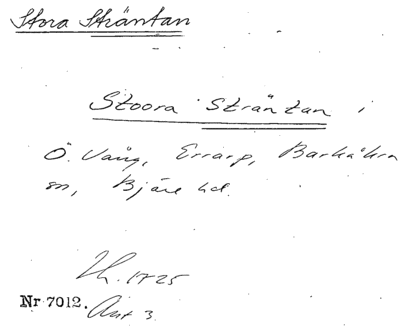 Stora Sträntan
Stoora Sträntan i
Ö. Vång, Errarp, Barkåkra
sn, Bjäre hd.
Lh. 1725
Nr 7012. Akt 3